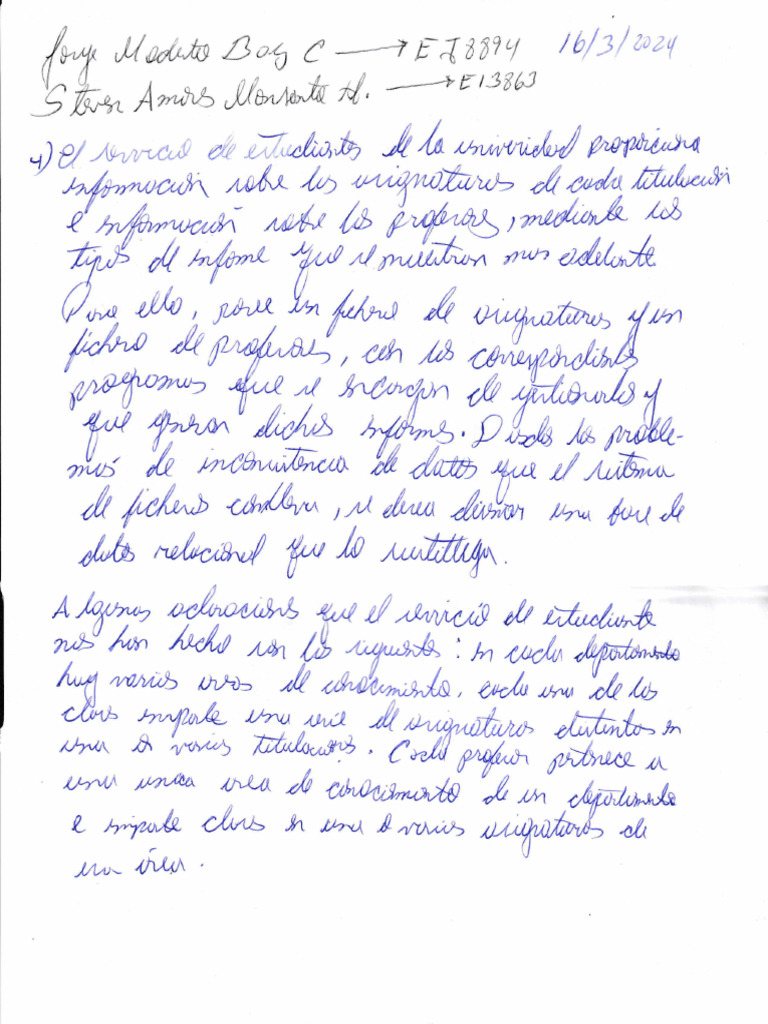 Jorge Modesto Baez C → EJ8894 16/3/2024
Steven Amores Monsanto A. → EI3863
4) El servicio de estudiantes de la universidad proporciona
información sobre las asignaturas de cada titulación
e información sobre los profesores, mediante los
tipos de informe que se muestran mas adelante
Para ello, posee un fichero de asignaturas y un
fichero de profesores, con los correspondientes
programas que se encargan de gestionarlos y
que generan dichos informes. Dados los proble-
mas de inconsistencia de datos que el sistema
de ficheros conlleva, se desea diseñar una base de
datos relacional que lo sustituya.
Algunas aclaraciones que el servicio de estudiante
nos han hecho son las siguientes: en cada departamento
hay varias areas de conocimiento, cada una de las
imparte una serie de asignaturas distintas en
una o varias titulaciones. Cada profesor pertenece a
una unica area de conocimiento de un departamento
e imparte clases en una o varias asignaturas de
área.